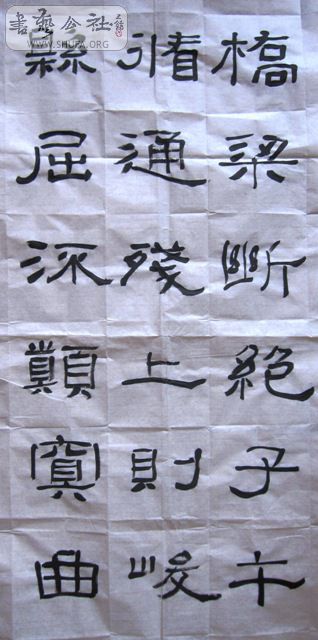 書藝公社
WWW.SHUFA.ORG
橋梁斷絕子午
循通殘上則峻
縣屈流顛寘曲